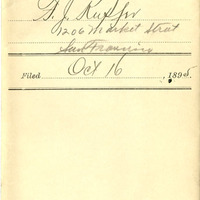 1206 Market Street
San Francisco
Filed Oct 16, 1895.